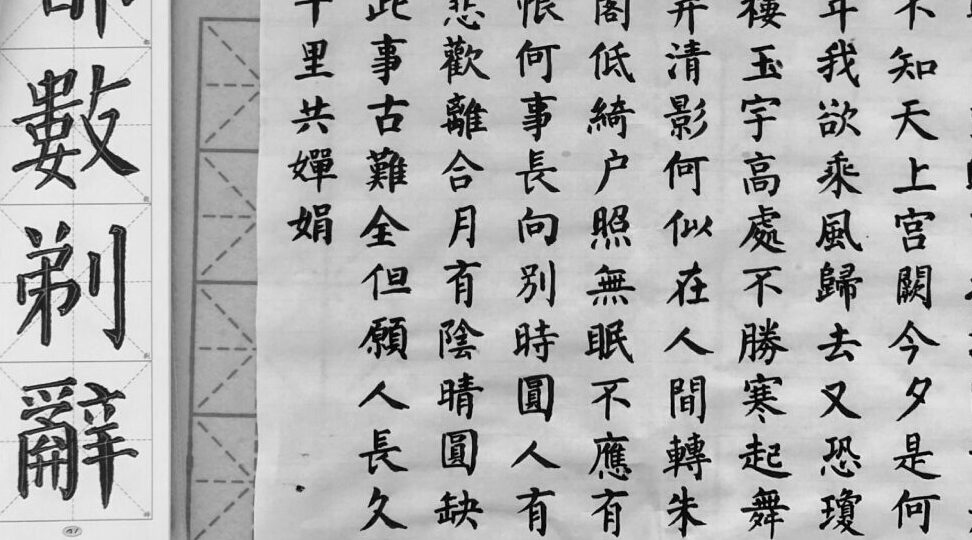 不知天上宮闕今夕是何
年我欲乘風歸去又恐瓊
樓玉宇高處不勝寒起舞
弄清影何似在人間轉朱
閣低綺户照無眠不應有
恨何事長向別時圓人有
悲歡離合月有陰晴圓缺
此事古難全但願人長久
千里共嬋娟
數剃辭